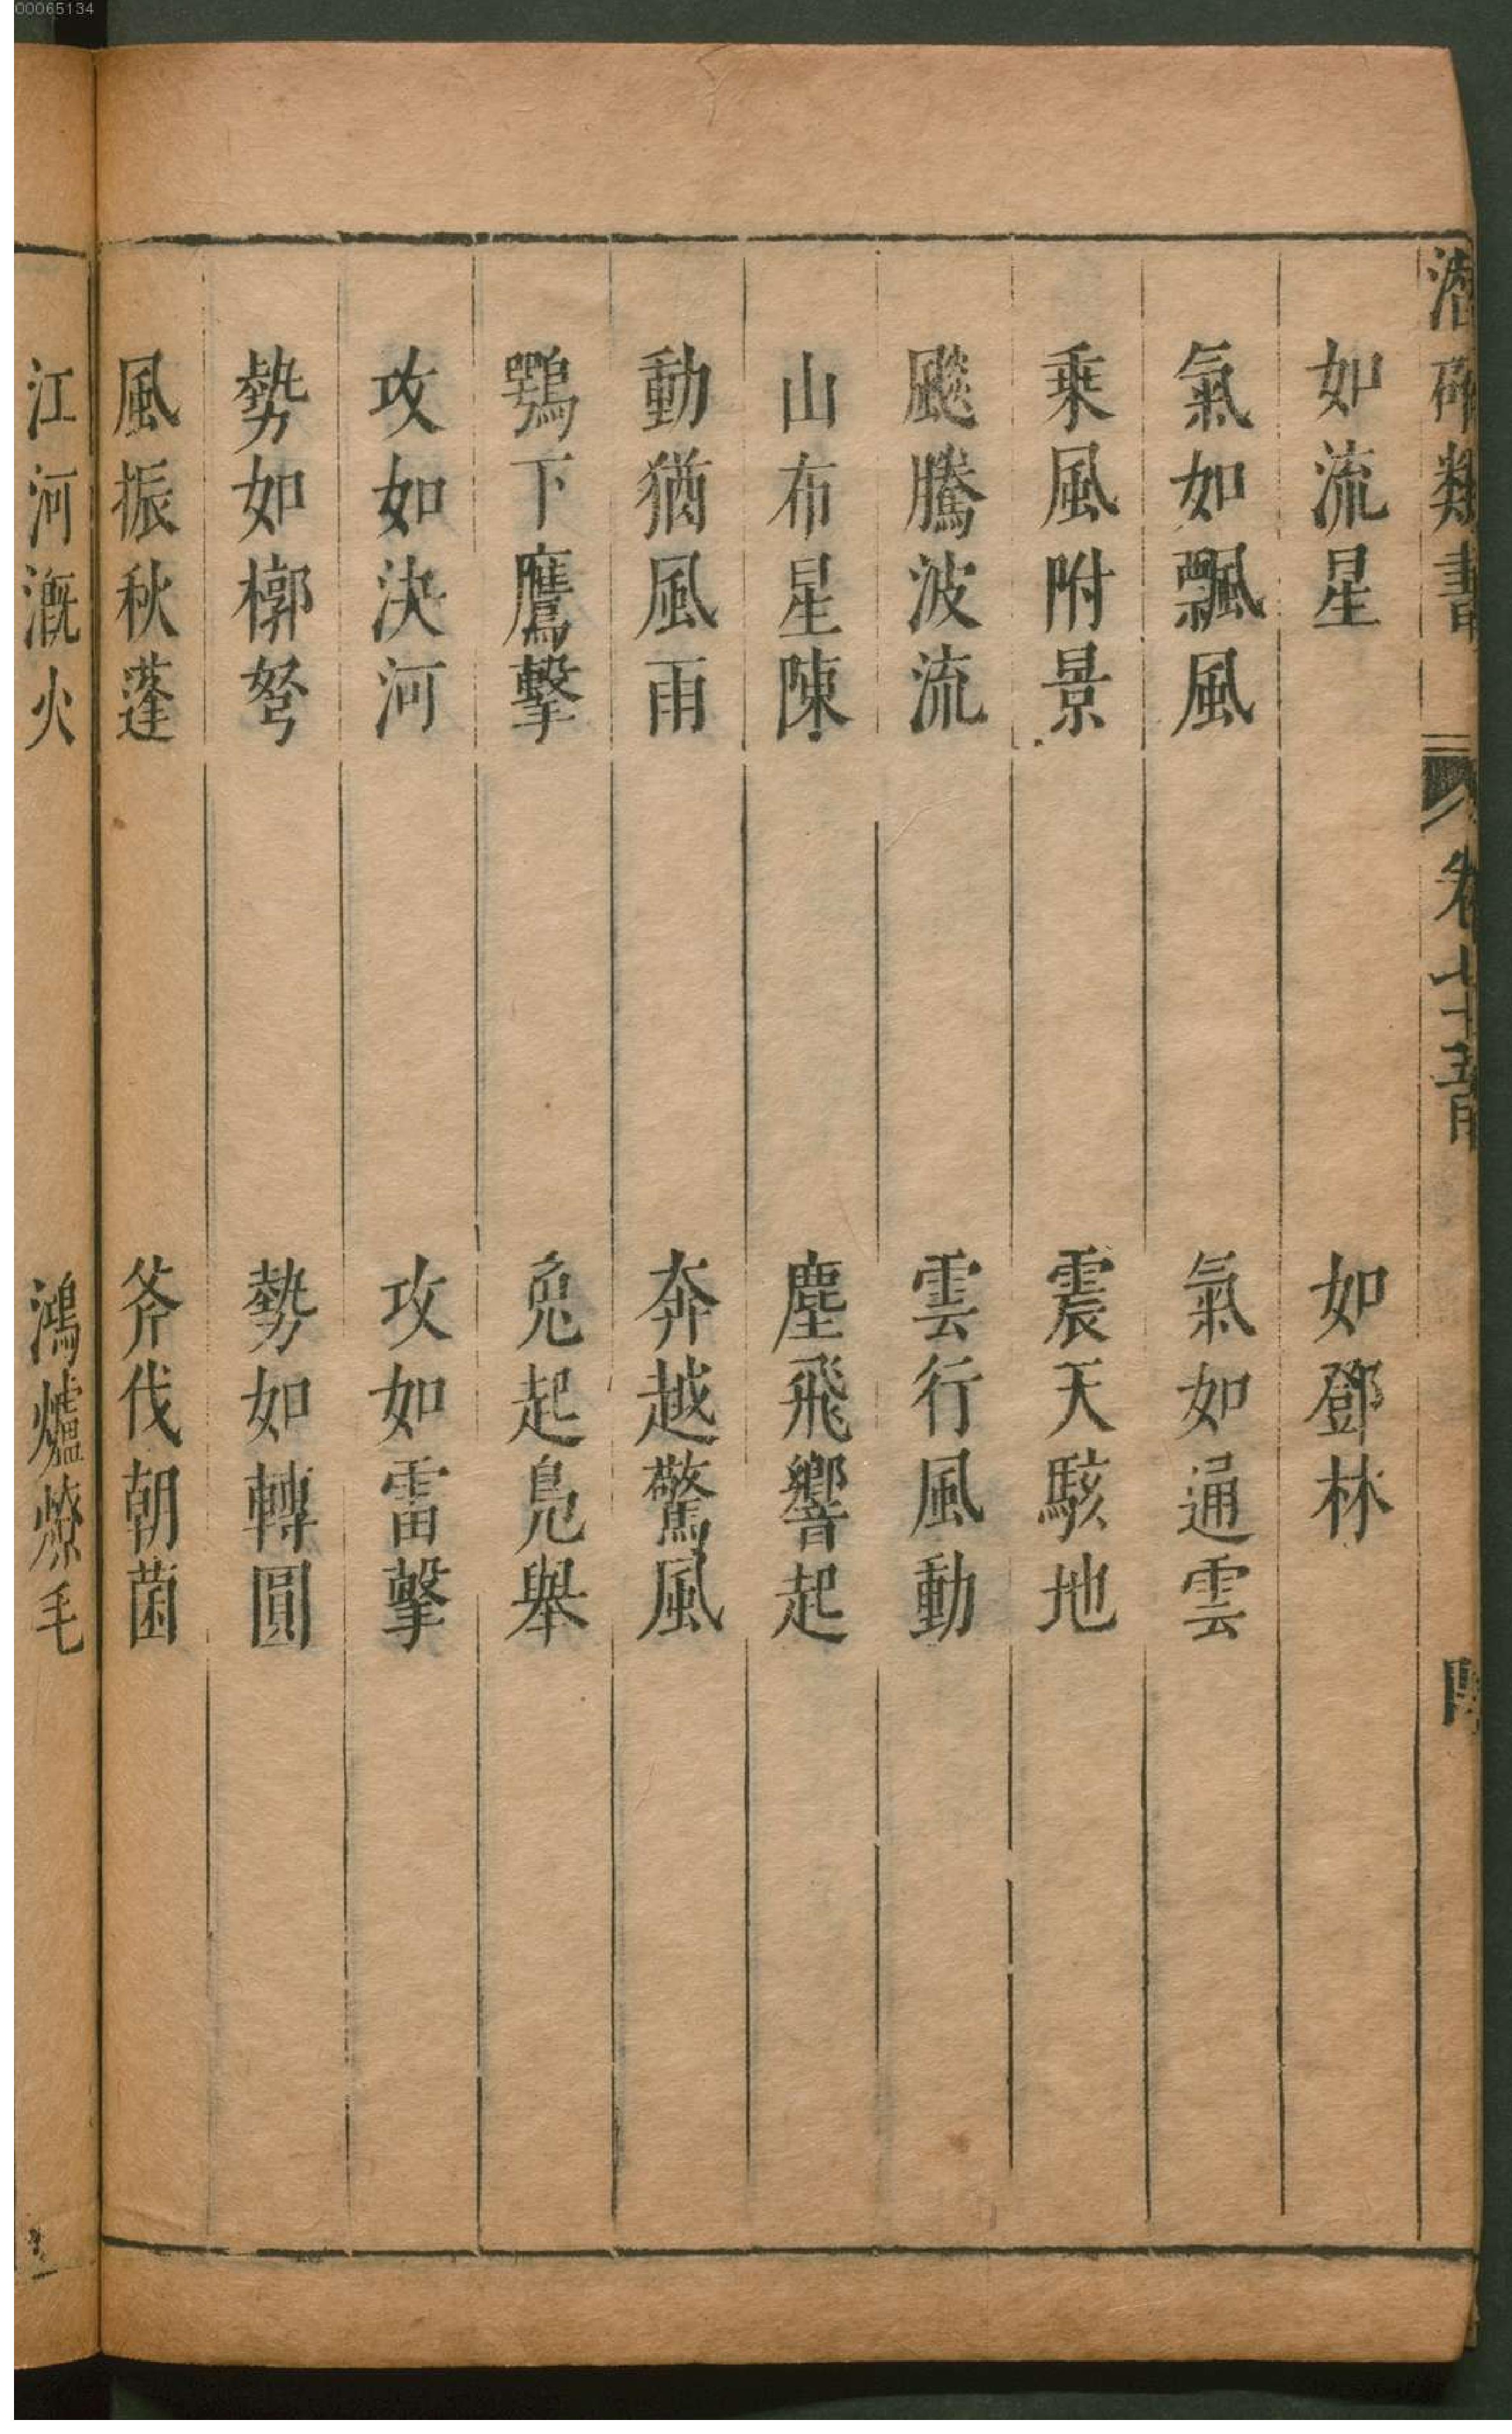 00065134
潛確類書
卷七十五
如流星
如鄧林
氣如飄風
氣如通雲
乗風附景
震天駭地
飈騰波流
雲行風動
山布星陳
塵飛響起
動猶風雨
奔越驚風
鶚下鷹擊
兔起鳧舉
攻如決河
攻如雷擊
勢如彍弩
勢如轉圓
風振秋蓬
斧伐朝菌
江河溉火
鴻爐燎毛